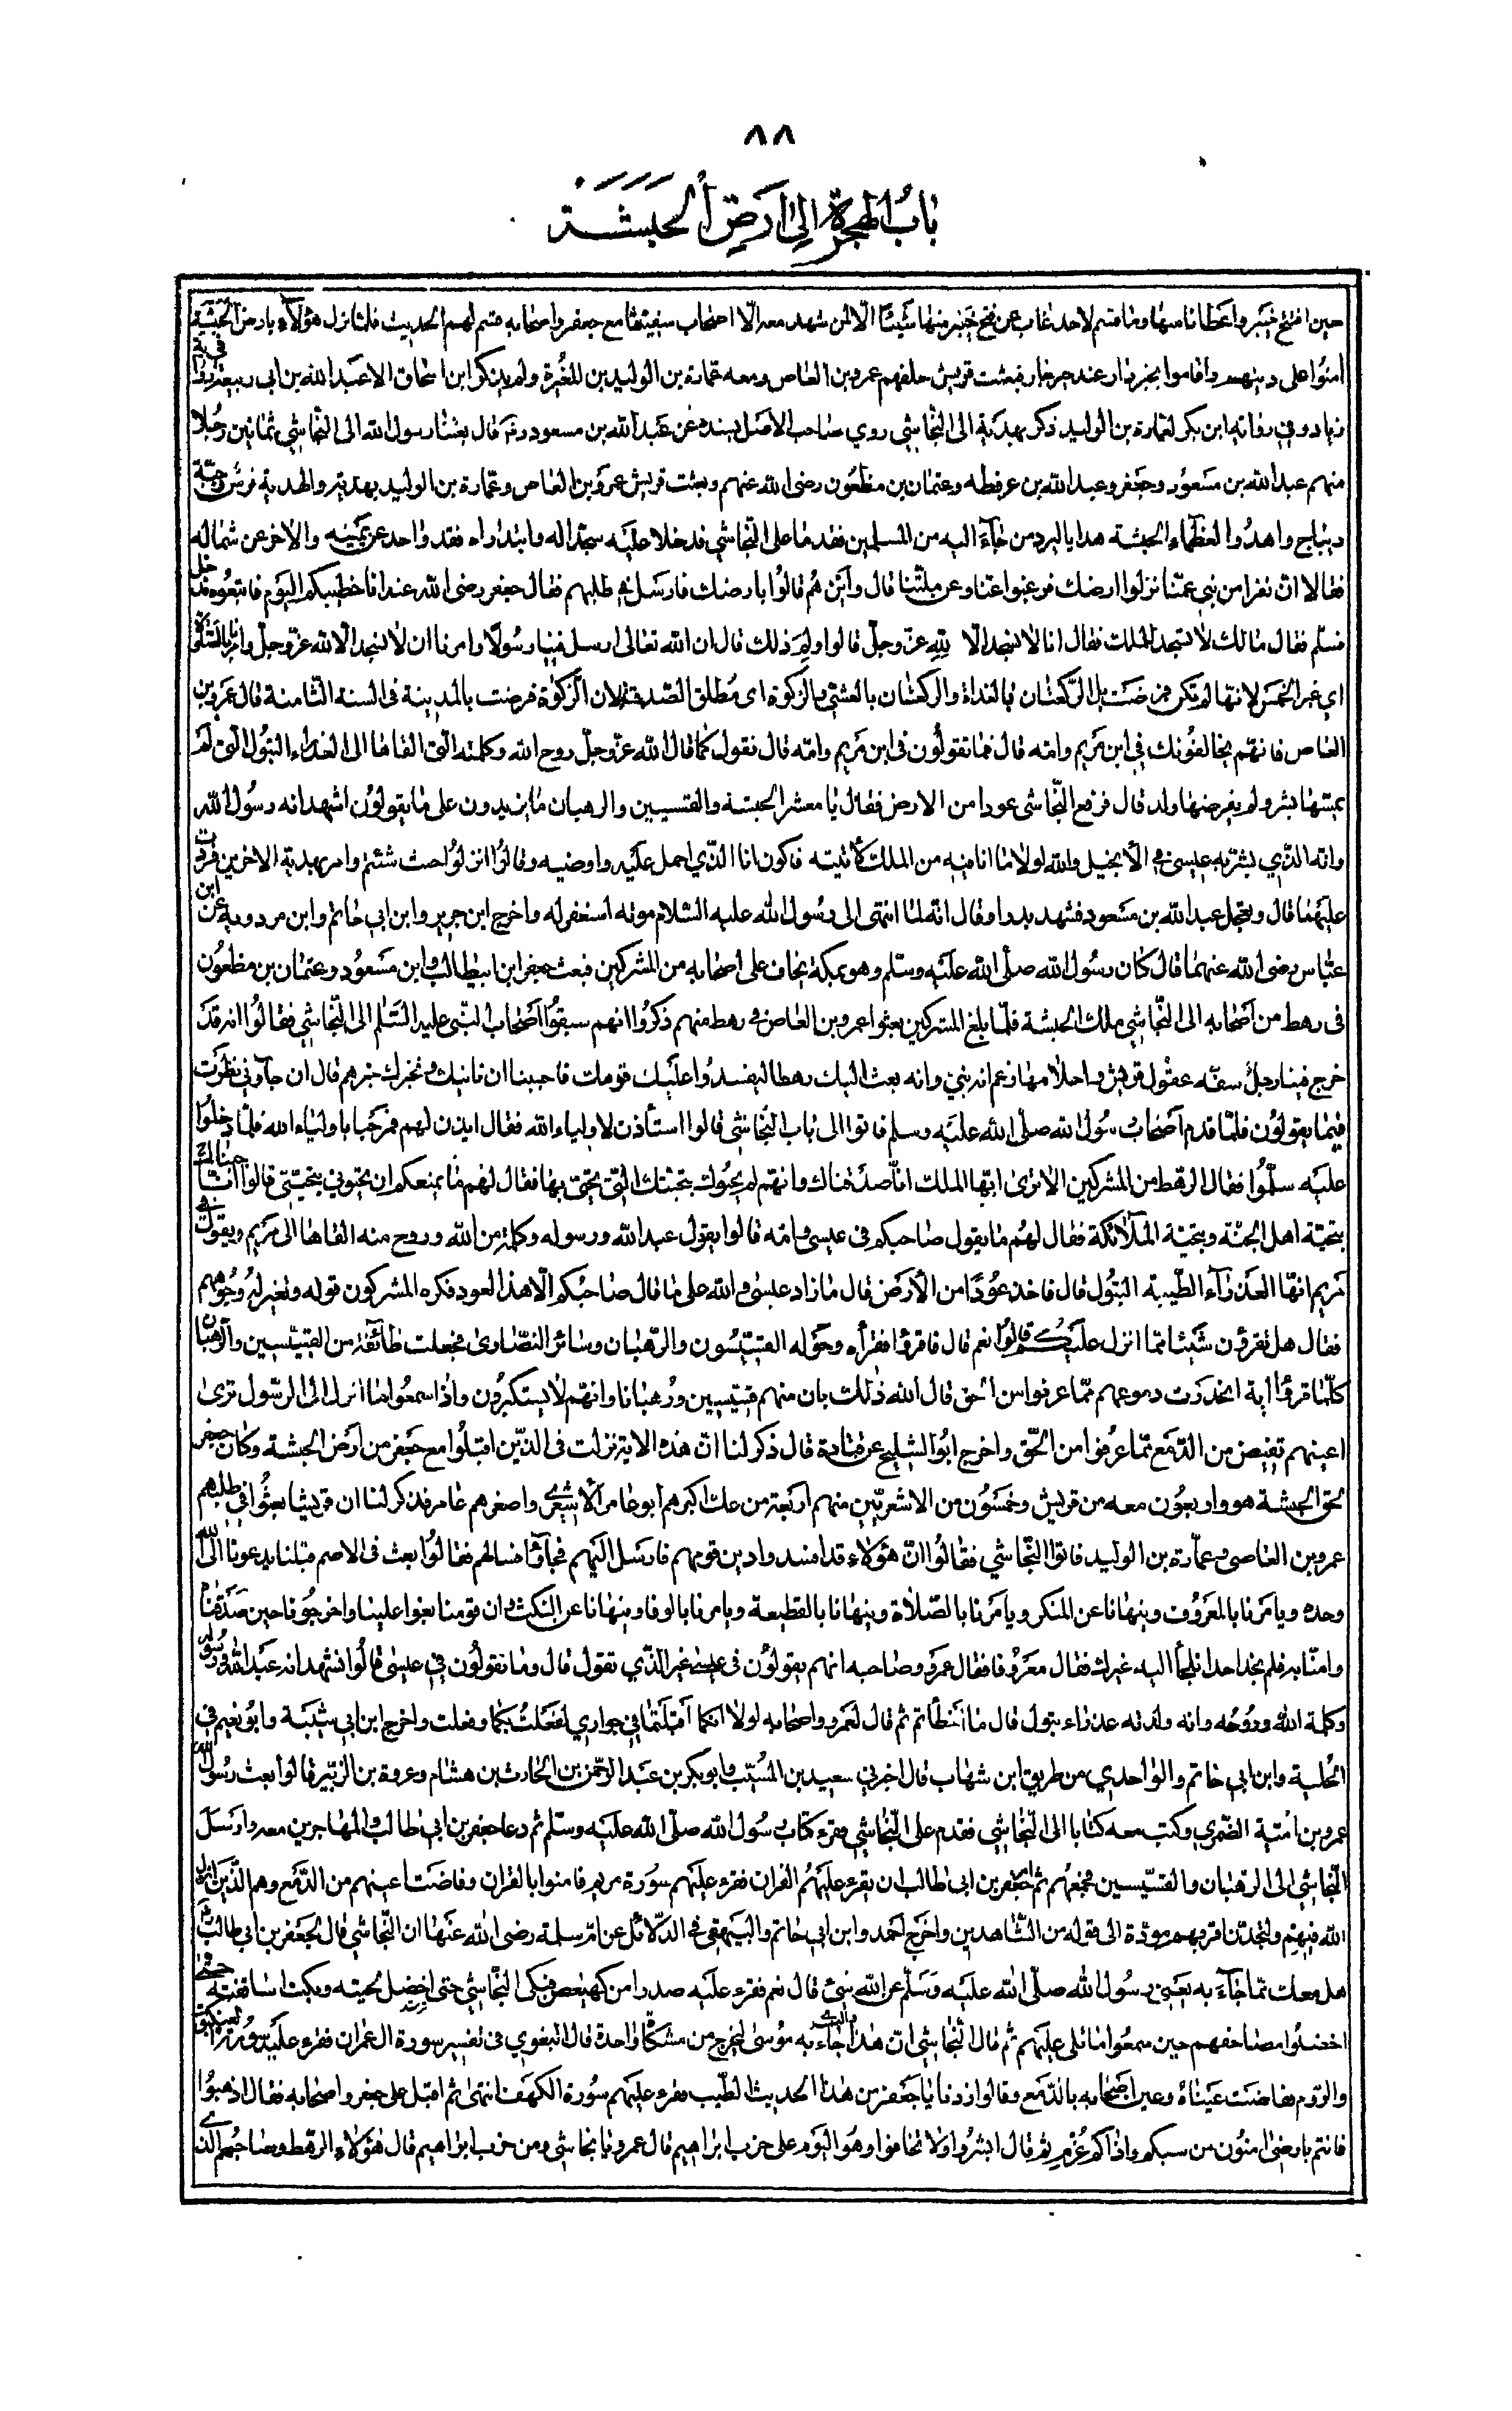 ٨٨
باب الهجرة الى ارض الحبشة
حين افتتح خيبر واعطانا منها وما قسم لاحد غاب عن فتح خيبر منها شيئا الا لمن شهد معه الا اصحاب سفينتنا مع جعفر واصحابه قسم لهم الحديث فلما نزل هؤلاء بارض الحبشة
امنوا على دينهم واقاموا بخير دار عند خير جار فبعثت قريش خلفهم عمرو بن العاص ومعه عمارة بن الوليد بن المغيرة ولم يذكر ابن اسحاق الا عبد الله بن ابي ربيعة
زياد وفي رواية ابن بكر لعمارة بن الوليد ذكر بهدية الى النجاشي روي صاحب الاصل بسنده عن عبد الله بن مسعود رضه قال بعثنا رسول الله الى النجاشي ثمانين رجلا
منهم عبد الله بن مسعود وجعفر وعبد الله بن عرفطه وعثمان بن مظعون رضى الله عنهم وبعثت قريش عمرو بن العاص وعمارة بن الوليد بهدية والهدية فرس وجبة
ديباج واهدوا لعظماء الحبشة هدايا ليرد من جاء اليه من المسلمين فقدما على النجاشي فدخلا عليه سجدا له وابتدراه فقعد واحد عن يمينه والاخر عن شماله
فقالا ان نفرا من بني عمنا نزلوا ارضك فرغبوا عنا وعن ملتنا قال واين هم قالوا بارضك فارسل في طلبهم فقال جعفر رضى الله عنه انا خطيبكم اليوم فاتبعوه فدخل
فسلم فقال مالك لا تسجد للملك فقال انا لا نسجد الا لله عز وجل قالوا ولم ذلك قال ان الله تعالى ارسل فينا رسولا وامرنا ان لا نسجد الا لله عز وجل وامرنا بالصلوة
اي غير الخمس لانها لم تكن فرضت بل الركعتان بالغداة والركعتان بالعشي وبالزكوة اى مطلق الصدقة لان الزكوة فرضت بالمدينة فى السنة الثامنة قال عمرو بن
العاص فانهم يخالفونك في ابن مريم وامه قال فما تقولون فى ابن مريم وامه قال نقول كما قال الله عز وجل روح الله وكلمته التى القاها الى العذراء البتول التى لم
يمسها بشر ولم يفرضها ولد قال فرفع النجاشى عودا من الارض فقال يا معشر الحبشة والقسيسين والرهبان ما يزيدون على ما يقولون اشهد انه رسول الله
وانه الذي بشر به عيسى فى الانجيل والله لولا ما انا فيه من الملك لاتيته فاكون انا الذي احمل نعليه واوضيه وقالوا انزلوا حيث شئتم وامر بهدية الاخرين فردت
عليهما قال وتعجل عبد الله بن مسعود فشهد بدرا وقال انه لما انتهى الى رسول الله عليه السلام موته استغفر له واخرج ابن جرير وابن ابي حاتم وابن مردويه عن ابن
عباس رضى الله عنهما قال كان رسول الله صلى الله عليه وسلم وهو بمكة يخاف على اصحابه من المشركين فبعث جعفر ابن ابيطالب وابن مسعود وعثمان بن مظعون
فى رهط من اصحابه الى النجاشي ملك الحبشة فلما بلغ المشركين بعثوا عمرو بن العاص في رهط منهم ذكروا انهم سبقوا اصحاب النبى عليه السلام الى النجاشي فقالوا انه قد
خرج فينا رجل سفه عقول قريش واحلامها وزعم انه نبي وانه بعث اليك رهطا ليفسدوا عليك قومك فاحببنا ان ناتيك ونخبرك خبرهم قال ان جاؤني نظرت
فيما يقولون فلما قدم اصحاب رسول الله صلى الله عليه وسلم فاتوا الى باب النجاشي قالوا استأذن لاولياء الله فقال ايذن لهم فمرحبا باولياء الله فلما دخلوا
عليه سلموا فقال الرهط من المشركين الا ترى ايها الملك انا صدقناك وانهم لم يحيوك بتحيتك التي تحيى بها فقال لهم ما يمنعكم ان تحيوني بتحيتي قالوا انا حييناك
بتحية اهل الجنة وبتحية الملائكة فقال لهم ما يقول صاحبكم فى عيسى وامه قالوا يقول عبد الله ورسوله وكلمة من الله وروح منه القاها الى مريم ويقول في
مريم انها العذراء الطيبة البتول قال فاخذ عودا من الارض قال ما زاد عيسى والله على ما قال صاحبكم الا هذا العود فكره المشركون قوله وتغير له وجوههم
فقال هل تقرؤن شيئا مما انزل عليكم قالوا نعم قال فاقرؤا فقرأه وحوله القسيسون والرهبان وسائر النصارى فجعلت طائفة من القسيسين والرهبان
كلما قرؤا اية انحدرت دموعهم مما عرفوا من الحق قال الله ذلك بان منهم قسيسين ورهبانا وانهم لا يستكبرون واذا سمعوا ما انزل الى الرسول ترى
اعينهم تفيض من الدمع مما عرفوا من الحق واخرج ابو الشيخ عن قتادة قال ذكر لنا ان هذه الاية نزلت فى الذين اقبلوا مع جعفر من ارض الحبشة وكان جعفر
لحق الحبشة هو واربعون معه من قريش وخمسون من الاشعريين منهم اربعة من عك اكبرهم ابو عامر الاشعرى واصغرهم عامر فذكر لنا ان قريشا بعثوا في طلبهم
عمرو بن العاصى وعمارة بن الوليد فاتوا النجاشي فقالوا ان هؤلاء قد افسدوا دين قومهم فارسل اليهم فجاؤا فسالهم فقالوا بعث الله فى الامم قبلنا يدعونا الى الله
وحده ويامرنا بالمعروف وينهانا عن المنكر ويامرنا بالصلاة وينهانا بالقطيعة ويامرنا بالوفا وينهانا عن النكث وان قومنا بغوا علينا واخرجونا حين صدقناه
وامنا به فلم نجد احدا نلجأ اليه غيرك فقال معروفا فقال عمرو وصاحبه انهم يقولون فى عيسى غير الذي تقول قال وما تقولون في عيسى قالوا نشهد انه عبد الله ورسوله
وكلمة الله وروحه وانه ولدته عذراء بتول قال ما اخطأتم ثم قال لعمرو واصحابه لولا انكما اقبلتما في جواري لفعلت بكما وفعلت واخرج ابن ابي شيبة وابو نعيم في
الحلية وابن ابي حاتم والواحدي من طريق ابن شهاب قال اخبرني سعيد بن المسيب وابو بكر بن عبد الرحمن بن الحارث بن هشام وعروة بن الزبير قالوا بعث رسول الله
عمرو بن امية الضمري وكتب معه كتابا الى النجاشي فقدم على النجاشي فقرء كتاب رسول الله صلى الله عليه وسلم ثم دعا جعفر بن ابي طالب والمهاجرين معه وارسل
النجاشي الى الرهبان والقسيسين فجمعهم ثم امر جعفر بن ابى طالب ان يقرء عليهم القران فقرء عليهم سورة مريم فامنوا بالقران وفاضت اعينهم من الدمع وهم الذين انزل
الله فيهم ولتجدن اقربهم مودة الى قوله من الشاهدين واخرج احمد وابن ابي حاتم والبيهقى فى الدلائل عن ام سلمة رضى الله عنها ان النجاشي قال لجعفر بن ابي طالب
هل معك مما جاء به يعني رسول الله صلى الله عليه وسلم عن الله شئ قال نعم فقرء عليه صدرا من كهيعص فبكى النجاشي حتى اخضل لحيته وبكت اساقفته حتى
اخضلوا مصاحفهم حين سمعوا ما تلى عليهم ثم قال النجاشي ان هذا والذي جاء به موسى ليخرج من مشكاة واحدة قال البغوي فى تفسير سورة ال عمران فقرء عليه سورة العنكبوت
والروم ففاضت عيناه وعين اصحابه بالدمع وقالوا زدنا يا جعفر من هذا الحديث الطيب فقرء عليهم سورة الكهف انتهى ثم اقبل على جعفر واصحابه فقال اذهبوا
فانتم بارضى امنون من سبكم واذاكم غرم ثم قال ابشروا ولا تخافوا وهو اليوم على حزب ابراهيم قال عمرو يا نجاشى ومن حزب ابراهيم قال هؤلاء الرهط وصاحبهم الذي